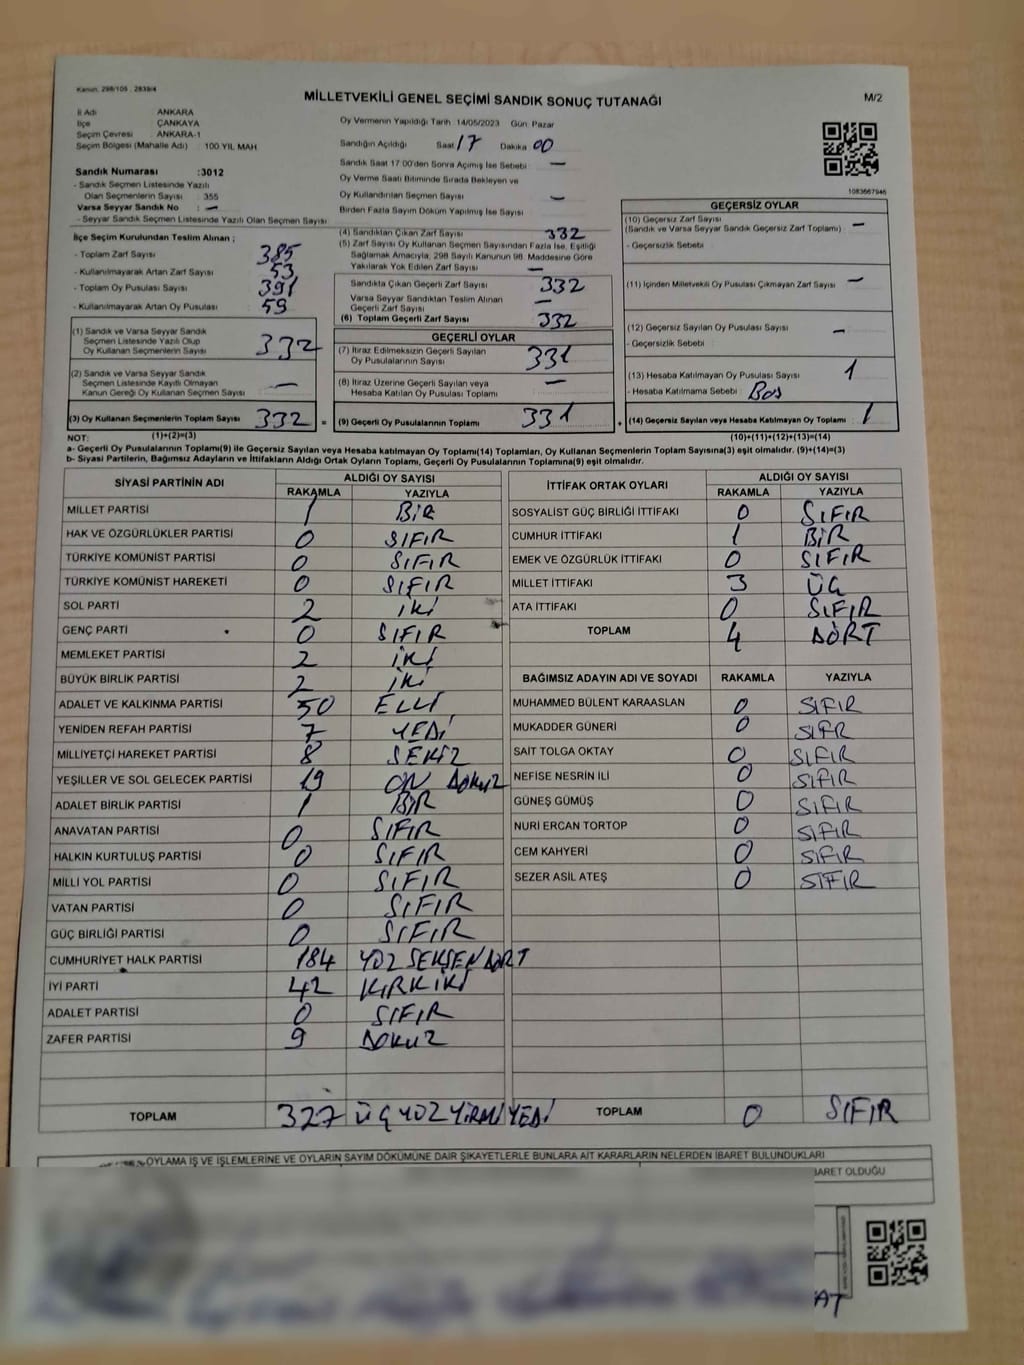 Kanun, 298/105 . 2839/4
MİLLETVEKİLİ GENEL SEÇİMİ SANDIK SONUÇ TUTANAĞI
M/2
İl Adı ANKARA
İlçe ÇANKAYA
Seçim Çevresi ANKARA-1
Seçim Bölgesi (Mahalle Adı) : 100.YIL MAH
Sandık Numarası :3012
- Sandık Seçmen Listesinde Yazılı
Olan Seçmenlerin Sayısı : 355
Varsa Seyyar Sandık No : —
- Seyyar Sandık Seçmen Listesinde Yazılı Olan Seçmen Sayısı
Oy Vermenin Yapıldığı Tarih 14/05/2023 Gün: Pazar
Sandığın Açıldığı Saat 17 Dakika 00
Sandık Saat 17.00'den Sonra Açılmış İse Sebebi : —
Oy Verme Saati Bitiminde Sırada Bekleyen ve
Oy Kullandırılan Seçmen Sayısı : —
Birden Fazla Sayım Döküm Yapılmış İse Sayısı :
1083667946
İlçe Seçim Kurulundan Teslim Alınan ;
- Toplam Zarf Sayısı : 385
- Kullanılmayarak Artan Zarf Sayısı : 53
- Toplam Oy Pusulası Sayısı : 391
- Kullanılmayarak Artan Oy Pusulası : 59
(1) Sandık ve Varsa Seyyar Sandık
Seçmen Listesinde Yazılı Olup
Oy Kullanan Seçmenlerin Sayısı 332
(2) Sandık ve Varsa Seyyar Sandık
Seçmen Listesinde Kayıtlı Olmayan
Kanun Gereği Oy Kullanan Seçmen Sayısı —
(3) Oy Kullanan Seçmenlerin Toplam Sayısı 332 =
(1)+(2)=(3)
(4) Sandıktan Çıkan Zarf Sayısı : 332
(5) Zarf Sayısı Oy Kullanan Seçmen Sayısından Fazla İse, Eşitliği
Sağlamak Amacıyla, 298 Sayılı Kanunun 98. Maddesine Göre
Yakılarak Yok Edilen Zarf Sayısı : —
Sandıkta Çıkan Geçerli Zarf Sayısı : 332
Varsa Seyyar Sandıktan Teslim Alınan
Geçerli Zarf Sayısı : —
(6) Toplam Geçerli Zarf Sayısı : 332
GEÇERLİ OYLAR
(7) İtiraz Edilmeksizin Geçerli Sayılan
Oy Pusulalarının Sayısı : 331
(8) İtiraz Üzerine Geçerli Sayılan veya
Hesaba Katılan Oy Pusulası Toplamı : —
(9) Geçerli Oy Pusulalarının Toplamı : 331 +
GEÇERSİZ OYLAR
(10) Geçersiz Zarf Sayısı
(Sandık ve Varsa Seyyar Sandık Geçersiz Zarf Toplamı) : —
- Geçersizlik Sebebi :
(11) İçinden Milletvekili Oy Pusulası Çıkmayan Zarf Sayısı : —
(12) Geçersiz Sayılan Oy Pusulası Sayısı : —
- Geçersizlik Sebebi :
(13) Hesaba Katılmayan Oy Pusulası Sayısı : 1
- Hesaba Katılmama Sebebi : Boş
(14) Geçersiz Sayılan veya Hesaba Katılmayan Oy Toplamı : 1
(10)+(11)+(12)+(13)=(14)
NOT:
a- Geçerli Oy Pusulalarının Toplamı(9) ile Geçersiz Sayılan veya Hesaba katılmayan Oy Toplamı(14) Toplamları, Oy Kullanan Seçmenlerin Toplam Sayısına(3) eşit olmalıdır. (9)+(14)=(3)
b- Siyasi Partilerin, Bağımsız Adayların ve İttifakların Aldığı Ortak Oyların Toplamı, Geçerli Oy Pusulalarının Toplamına(9) eşit olmalıdır.
SİYASİ PARTİNİN ADI ALDIĞI OY SAYISI
RAKAMLA YAZIYLA
MİLLET PARTİSİ 1 BİR
HAK VE ÖZGÜRLÜKLER PARTİSİ 0 SIFIR
TÜRKİYE KOMÜNİST PARTİSİ 0 SIFIR
TÜRKİYE KOMÜNİST HAREKETİ 0 SIFIR
SOL PARTİ 2 İKİ
GENÇ PARTİ 0 SIFIR
MEMLEKET PARTİSİ 2 İKİ
BÜYÜK BİRLİK PARTİSİ 2 İKİ
ADALET VE KALKINMA PARTİSİ 50 ELLİ
YENİDEN REFAH PARTİSİ 7 YEDİ
MİLLİYETÇİ HAREKET PARTİSİ 8 SEKİZ
YEŞİLLER VE SOL GELECEK PARTİSİ 19 ON DOKUZ
ADALET BİRLİK PARTİSİ 1 BİR
ANAVATAN PARTİSİ 0 SIFIR
HALKIN KURTULUŞ PARTİSİ 0 SIFIR
MİLLİ YOL PARTİSİ 0 SIFIR
VATAN PARTİSİ 0 SIFIR
GÜÇ BİRLİĞİ PARTİSİ 0 SIFIR
CUMHURİYET HALK PARTİSİ 184 YÜZ SEKSEN DÖRT
İYİ PARTİ 42 KIRK İKİ
ADALET PARTİSİ 0 SIFIR
ZAFER PARTİSİ 9 DOKUZ
TOPLAM 327 ÜÇ YÜZ YİRMİ YEDİ
İTTİFAK ORTAK OYLARI ALDIĞI OY SAYISI
RAKAMLA YAZIYLA
SOSYALİST GÜÇ BİRLİĞİ İTTİFAKI 0 SIFIR
CUMHUR İTTİFAKI 1 BİR
EMEK VE ÖZGÜRLÜK İTTİFAKI 0 SIFIR
MİLLET İTTİFAKI 3 ÜÇ
ATA İTTİFAKI 0 SIFIR
TOPLAM 4 DÖRT
BAĞIMSIZ ADAYIN ADI VE SOYADI RAKAMLA YAZIYLA
MUHAMMED BÜLENT KARAASLAN 0 SIFIR
MUKADDER GÜNERİ 0 SIFR
SAİT TOLGA OKTAY 0 SIFIR
NEFİSE NESRİN İLİ 0 SIFIR
GÜNEŞ GÜMÜŞ 0 SIFIR
NURİ ERCAN TORTOP 0 SIFIR
CEM KAHYERİ 0 SIFIR
SEZER ASİL ATEŞ 0 SIFIR
TOPLAM 0 SIFIR
OYLAMA İŞ VE İŞLEMLERİNE VE OYLARIN SAYIM DÖKÜMÜNE DAİR ŞİKAYETLERLE BUNLARA AİT KARARLARIN NELERDEN İBARET BULUNDUKLARI
İBARET OLDUĞU